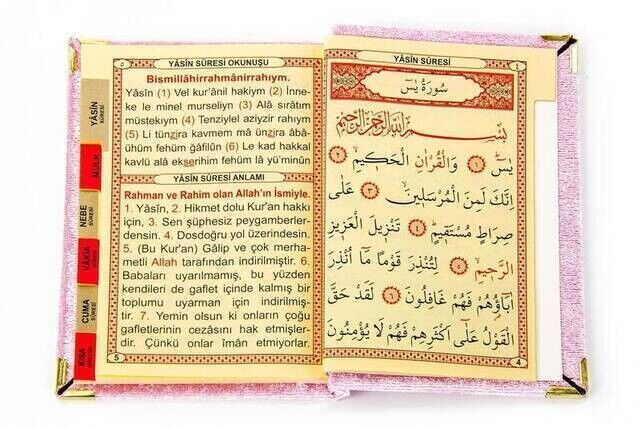 YÂSÎN SÛRESİ OKUNUŞU
Bismillâhirrahmânirrahıym.
Yâsîn (1) Vel kur'ânil hakiym (2) İnne-
ke le minel murseliyn (3) Alâ sırâtım
müstekıym (4) Tenziylel aziyzir rahıym
(5) Li tünzira kavmem mâ ünzira âbâ-
ühüm fehüm ğâfilûn (6) Le kad hakkal
kavlü alâ ekserihim fehüm lâ yü'minûn
YÂSÎN SÛRESİ ANLAMI
Rahman ve Rahim olan Allah'ın İsmiyle.
1. Yâsîn, 2. Hikmet dolu Kur'an hakkı
için, 3. Sen şüphesiz peygamberler-
densin. 4. Dosdoğru yol üzerindesin.
5. (Bu Kur'an) Gâlip ve çok merha-
metli Allah tarafından indirilmiştir. 6.
Babaları uyarılmamış, bu yüzden
kendileri de gaflet içinde kalmış bir
toplumu uyarman için indirilmiş-
tir. 7. Yemin olsun ki onların çoğu
gafletlerinin cezasını hak etmişler-
dir. Çünkü onlar îmân etmiyorlar.
5
YÂSÎN SÛRESİ
MÜLK
NEBE SÛRESİ
VÂKIA
CUMA SÛRESİ
KISA
YÂSÎN SÛRESİ
سُورَةُ يٰسٓ
بِسْمِ اللّٰهِ الرَّحْمٰنِ الرَّحِيمِ
يٰسٓ ١ وَالْقُرْاٰنِ الْحَكِيمِ ٢
اِنَّكَ لَمِنَ الْمُرْسَلِينَ ٣ عَلٰى
صِرَاطٍ مُسْتَقِيمٍ ٤ تَنْزِيلَ الْعَزِيزِ
الرَّحِيمِ ٥ لِتُنْذِرَ قَوْمًا مَٓا اُنْذِرَ
اٰبَٓاؤُهُمْ فَهُمْ غَافِلُونَ ٦ لَقَدْ حَقَّ
الْقَوْلُ عَلٰٓى اَكْثَرِهِمْ فَهُمْ لَا يُؤْمِنُونَ
4